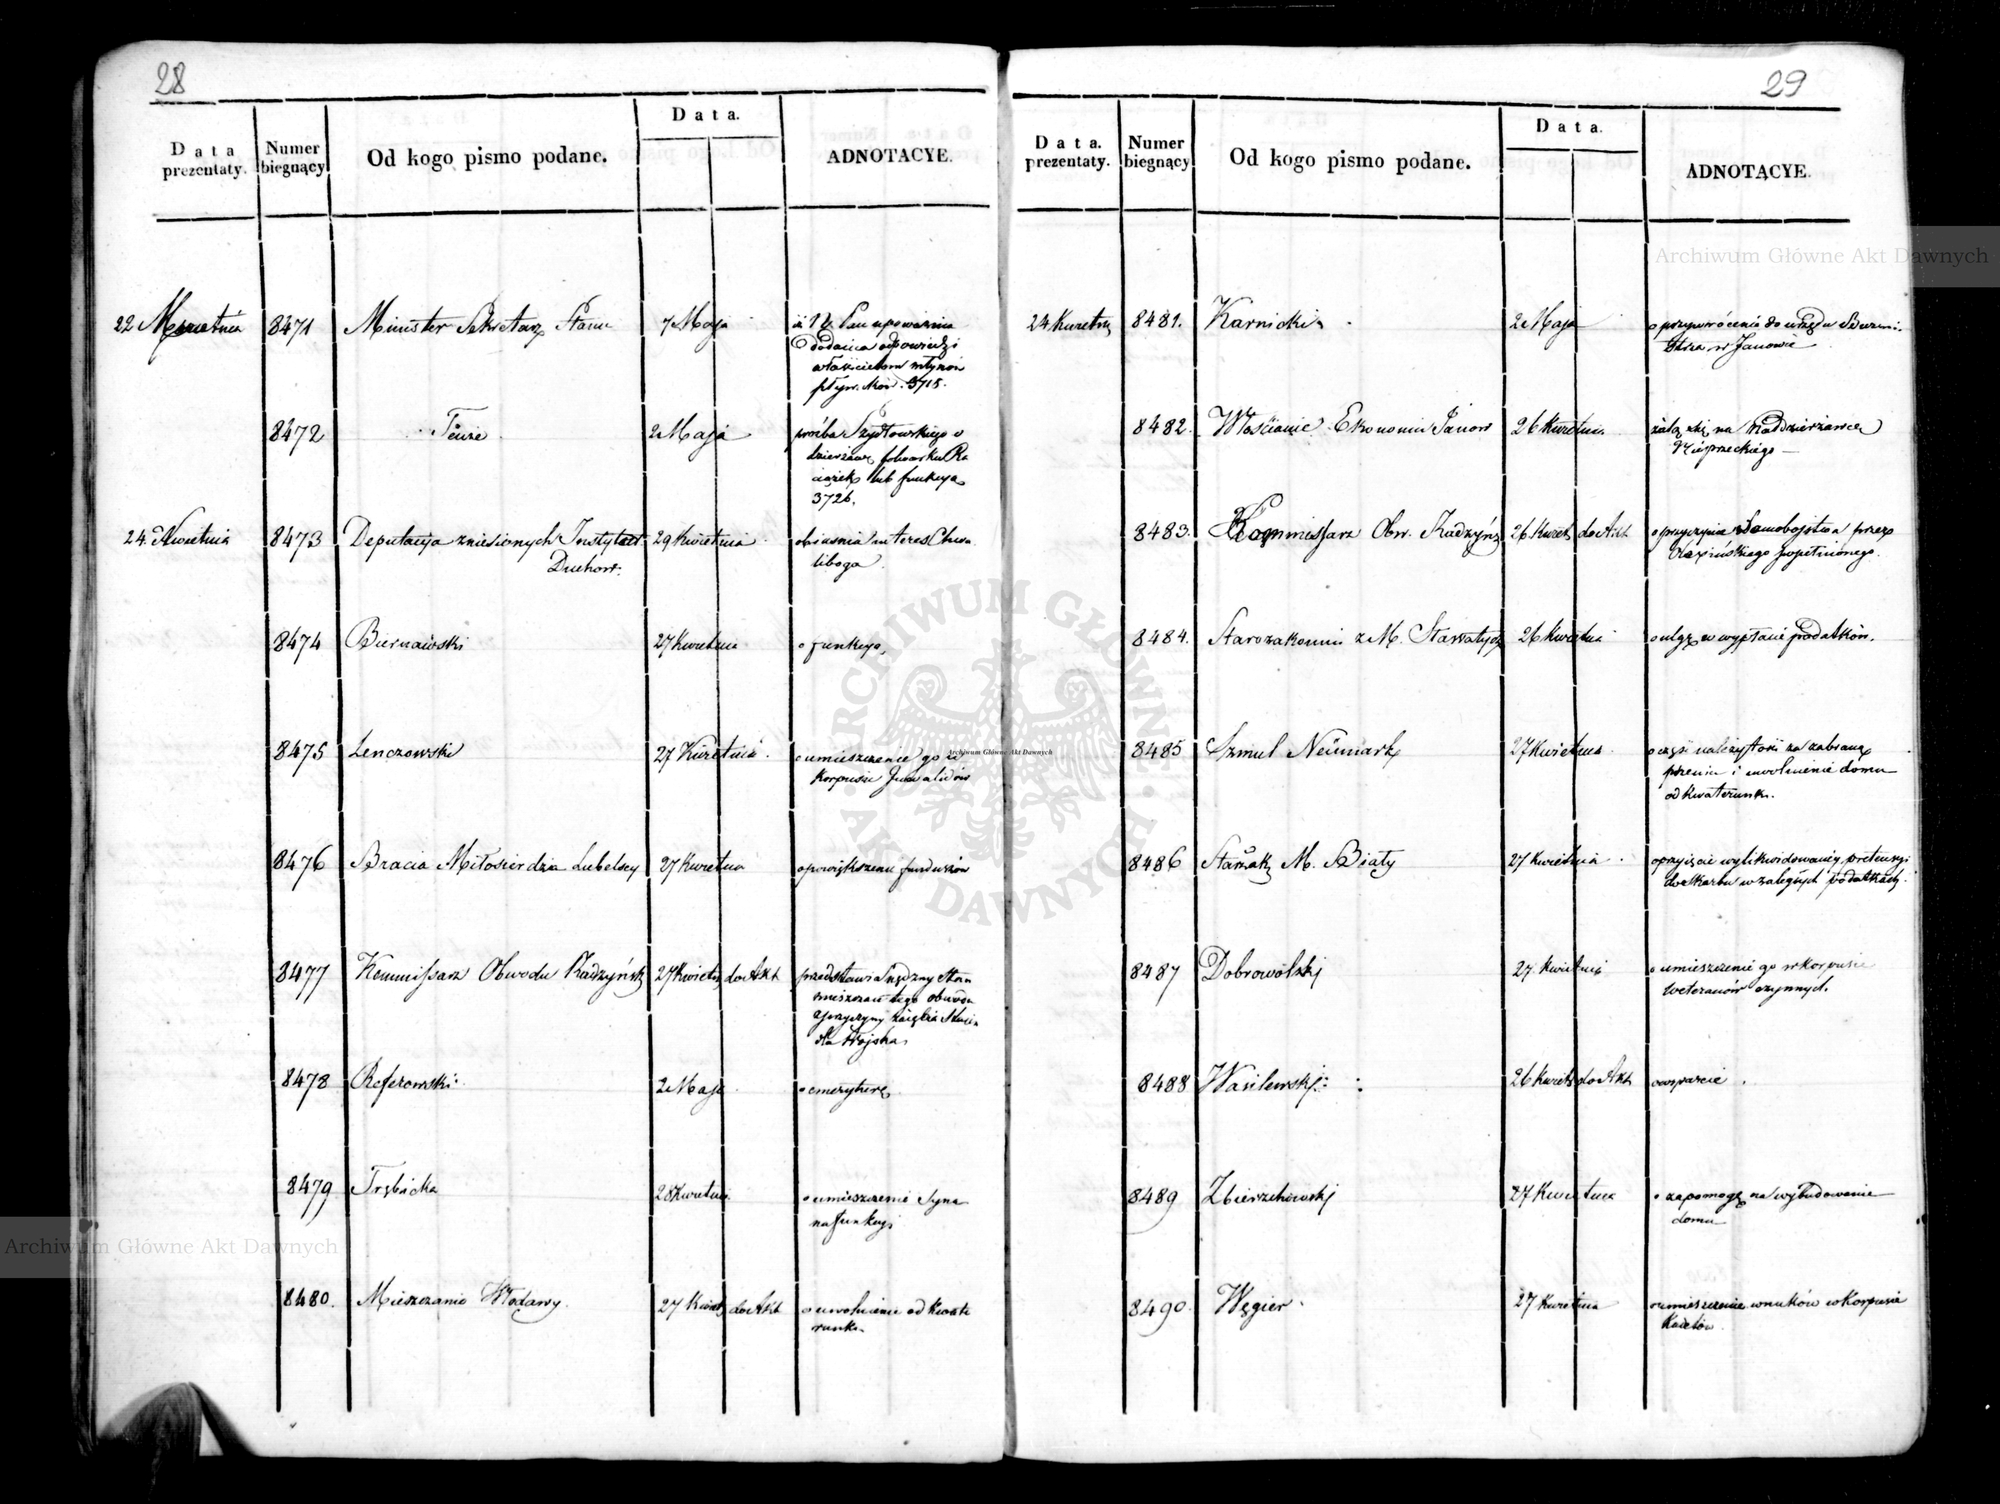 28
Data prezentaty.
Numer biegnący
Od kogo pismo podane.
Data.
ADNOTACYE.
22 Kwietnia 8471 Minister Sekretarz Stanu 7 Maja
dodania odpowiedzi
właścicielom młynów
pływ. Now. 3715.
8472 Tenże 2 Maja prośba Szydłowskiego o
dzierżawę folwarku Ra
ciążek lub funkcyę
3726.
24 Kwietnia 8473 Deputacya zniesionych Instytut 29 Kwietnia objaśnia interes Chwa
Duchow: liboga
8474 Biernawski 27 Kwietnia o funkcyę,
8475 Lenczowski 27 Kwietnia o umieszczenie go w
korpusie Inwalidów
8476 Bracia Miłosierdzia Lubelscy 27 Kwietnia o powiększenie funduszów
8477 Kommissarz Obwodu Radzyńsk 27 Kwietn do Akt przedstawia nędzny stan
mieszczan tego obwodu
z przyczyny
dla Wojska
8478 Referowski 2 Maja o emeryturę
8479 Trębicka 28 Kwietni o umieszczenie Syna
na funkcyi
8480. Mieszczanie Włodawy 27 Kwiet do Akt o uwolnienie od kwate
runku
29
Data. prezentaty.
Numer biegnący
Od kogo pismo podane.
Data.
ADNOTACYE.
24 Kwietn 8481. Karnicki 2 Maja o przywrócenie do urzędu Burmi
strza w Janowie
8482. Włościanie Ekonomii Janow 26 Kwietnia żalą się na Naddzierżawcę
Wieprzeckiego
8483. Kommissarz Obw. Radzyńs 26 Kwiet do Akt o przyczynie Samobojstwa przez
popełnionego.
8484. Starozakonni z M. Sławatycz 26 Kwietnia o ulgę w wypłacie podatków.
8485 Szmul Neumark 27 Kwietnia o części należytości za zabraną
pszenicę i uwolnienie domu
od kwaterunk.
8486 Starszak M. Biały 27 Kwietnia o przyjęcie wylikwidowaney pretensyi
do skarbu w zaległych podatkach.
8487 Dobrowolski 27. Kwietnia o umieszczenie go w korpusie
weteranów czynnych.
8488 Wasilewski: 26 Kwiet do Akt o wsparcie
8489 Zbierzchowski 27 Kwietnia o zapomogę na wybudowanie
domu
8490. Węgier 27 Kwietnia o umieszczenie wnuków w Korpusie
Kadetów
Archiwum Główne Akt Dawnych
Archiwum Główne Akt Dawnych
Archiwum Główne Akt Dawnych
ARCHIWUM GŁÓWNE AKT DAWNYCH